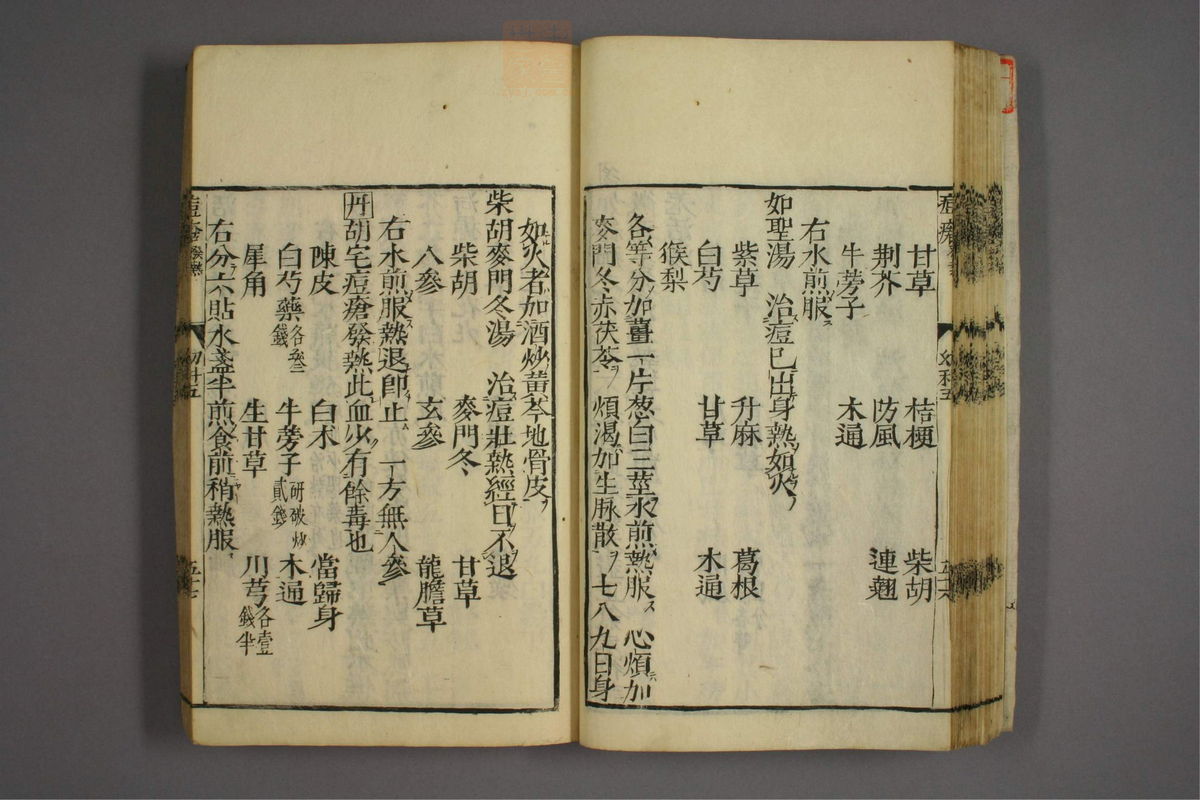 甘草 桔梗 柴胡
荆芥 防風 連翹
牛蒡子 木通
右水煎服ス
如聖湯 治痘已出身熱如火ヲ
紫草 升麻 葛根
白芍 甘草 木通
猴梨
各等分加薑一片葱白三莖水煎熱服ス 心煩加
麥門冬赤茯苓ヲ 煩渴加生脉散ヲ 七八九日身
如火者加酒炒黄芩地骨皮ヲ
柴胡麥門冬湯 治痘壯熱經日不退
柴胡 麥門冬 甘草
人參 玄參 龍膽草
右水煎服熱退即止 一方無人參
丹胡宅痘瘡發熱此血少有餘毒也
陳皮 白朮 當歸身
白芍藥各叄錢 牛蒡子研破炒貳錢 木通
犀角 生甘草 川芎各壹錢半
右分六貼水盞半煎食前稍熱服
幼科五
五十七